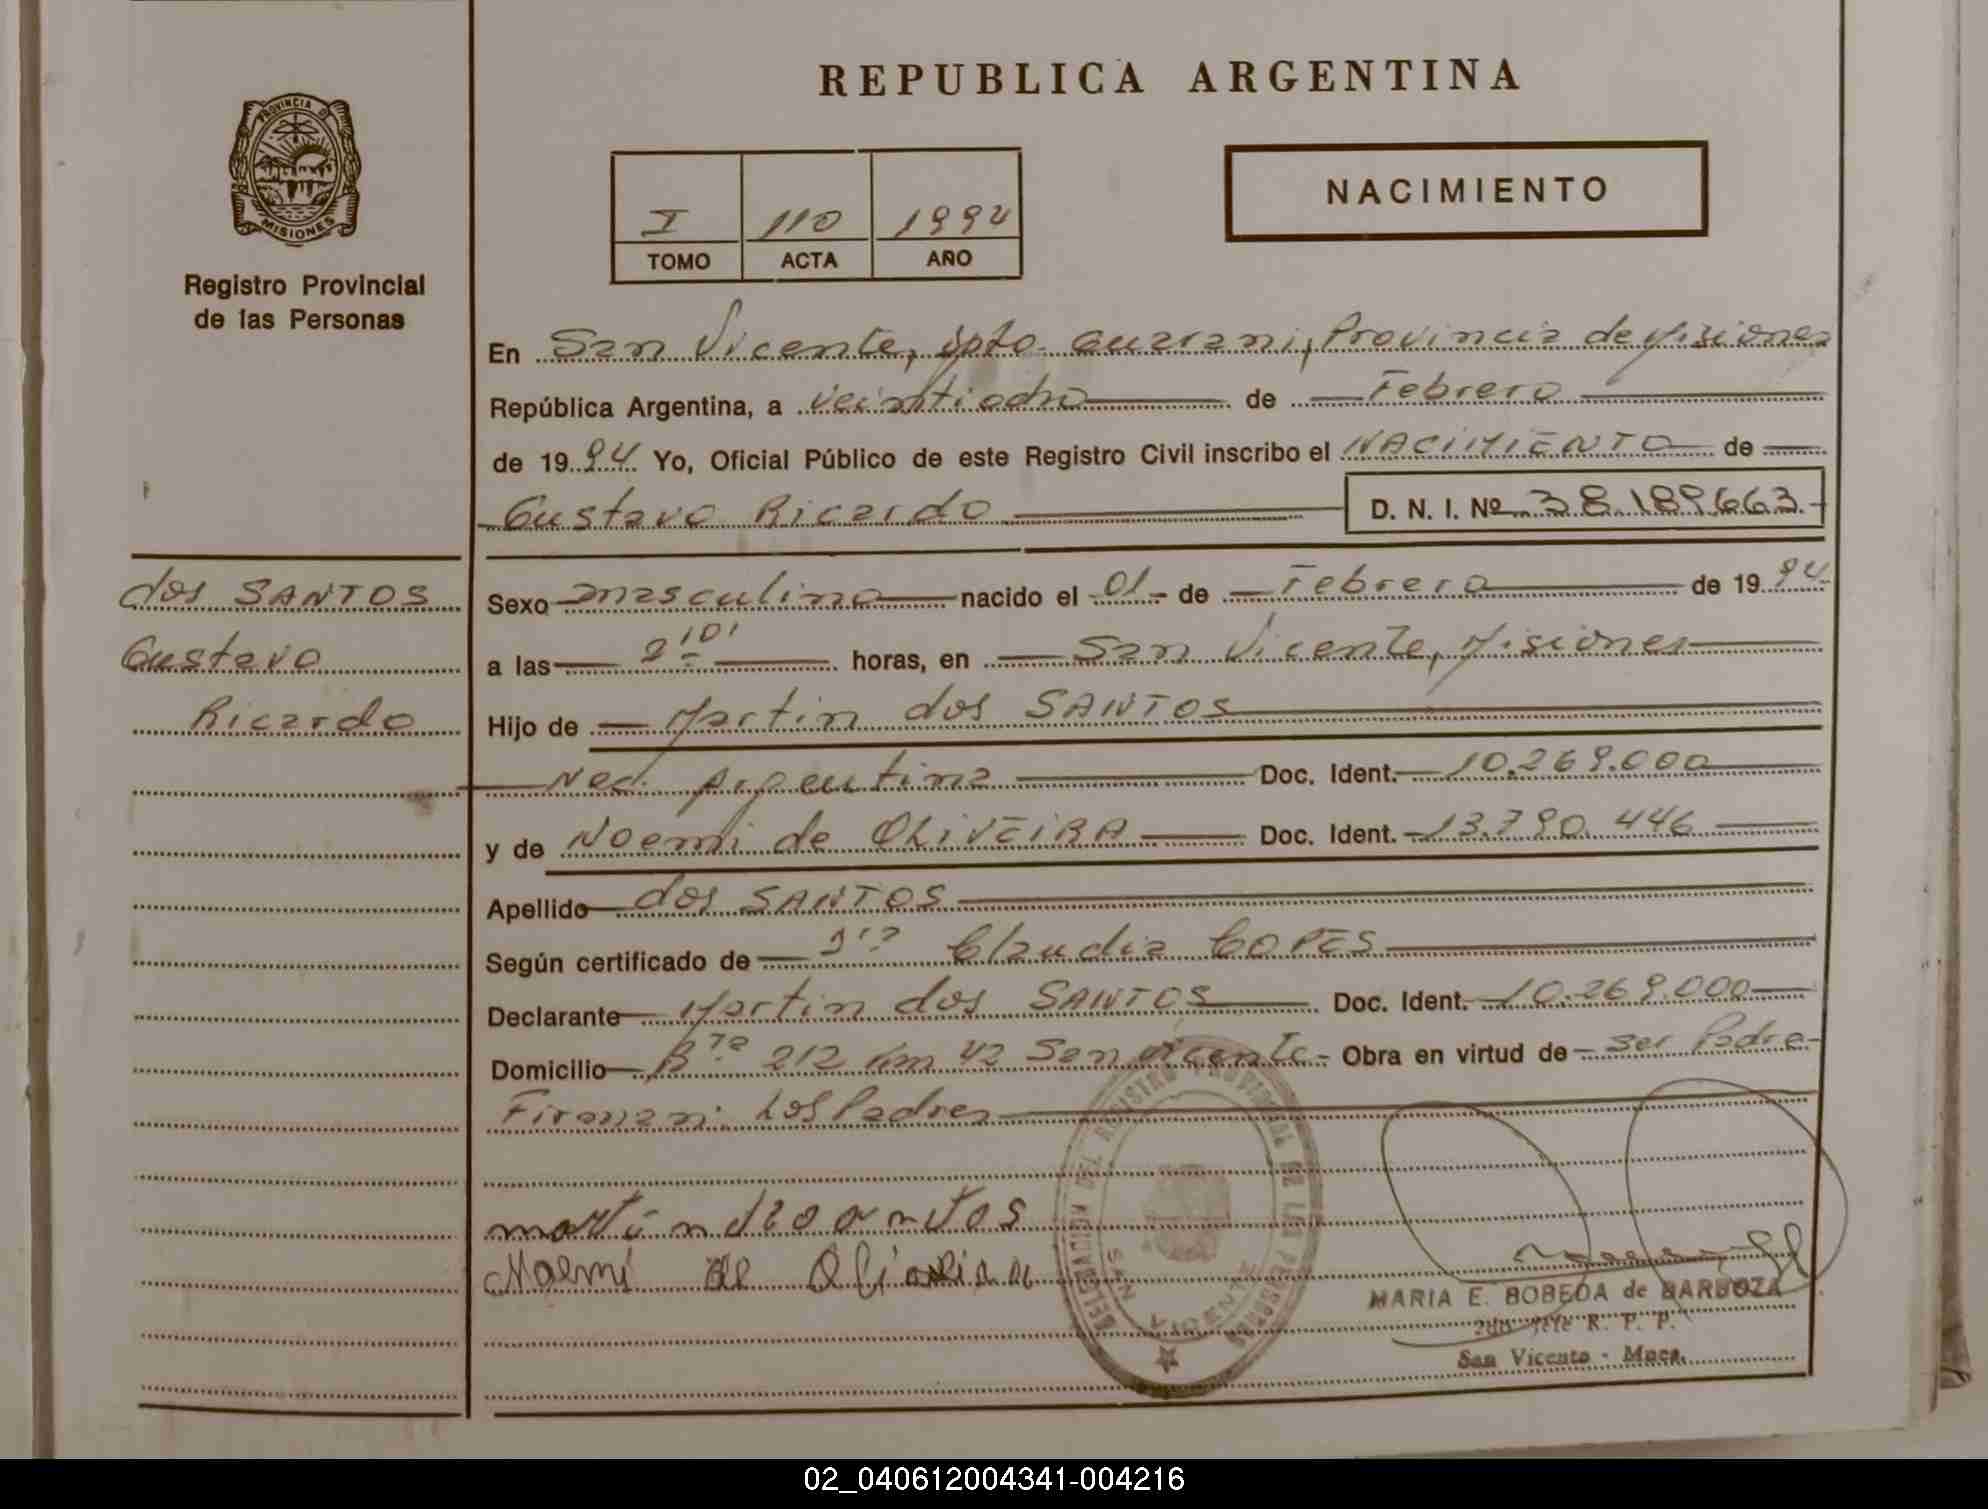 REPUBLICA ARGENTINA
PROVINCIA D
MISIONES
Registro Provincial
de las Personas
I 110 1994
TOMO ACTA AÑO
NACIMIENTO
En San Vicente, Dpto. Guarani, Provincia de Misiones
República Argentina, a veintiocho de Febrero
de 19 94 Yo, Oficial Público de este Registro Civil inscribo el NACIMIENTO de
Gustavo Ricardo D. N. I. Nº 38.189.663.-
dos SANTOS
Gustavo
Ricardo
Sexo masculino nacido el 01 de Febrero de 19 94.
a las horas, en San Vicente, Misiones
Hijo de Martin dos SANTOS
Nac. Argentina Doc. Ident. 10.269.000
y de Noemi de OLIVEIRA Doc. Ident. 13.790.446
Apellido dos SANTOS
Según certificado de Claudia
Declarante Martin dos SANTOS Doc. Ident. 10.269.000
Domicilio 212 Km 42 San Vicente.- Obra en virtud de ser Padre.-
Firman: Los Padres
Noemi de
DELEGACION DEL REGISTRO PROVINCIAL DE LAS PERSONAS
SAN VICENTE
MARIA E. BOBEDA de BARBOZA
2do Jefe R. P. P.
San Vicente - Mnes.
02_040612004341-004216